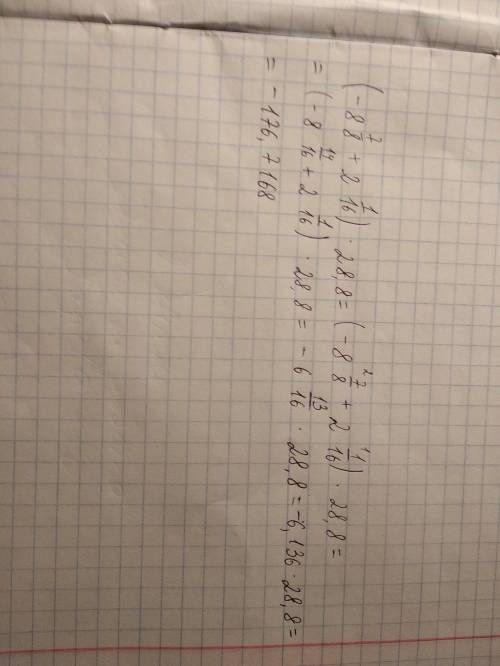 (-8 7/8 + 2 1/16) · 28,8 = (-8 ²7/8 + 2 ¹1/16) · 28,8 =
= (-8 14/16 + 2 1/16) · 28,8 = -6 13/16 · 28,8 = -6,136 · 28,8 =
= -176,7168